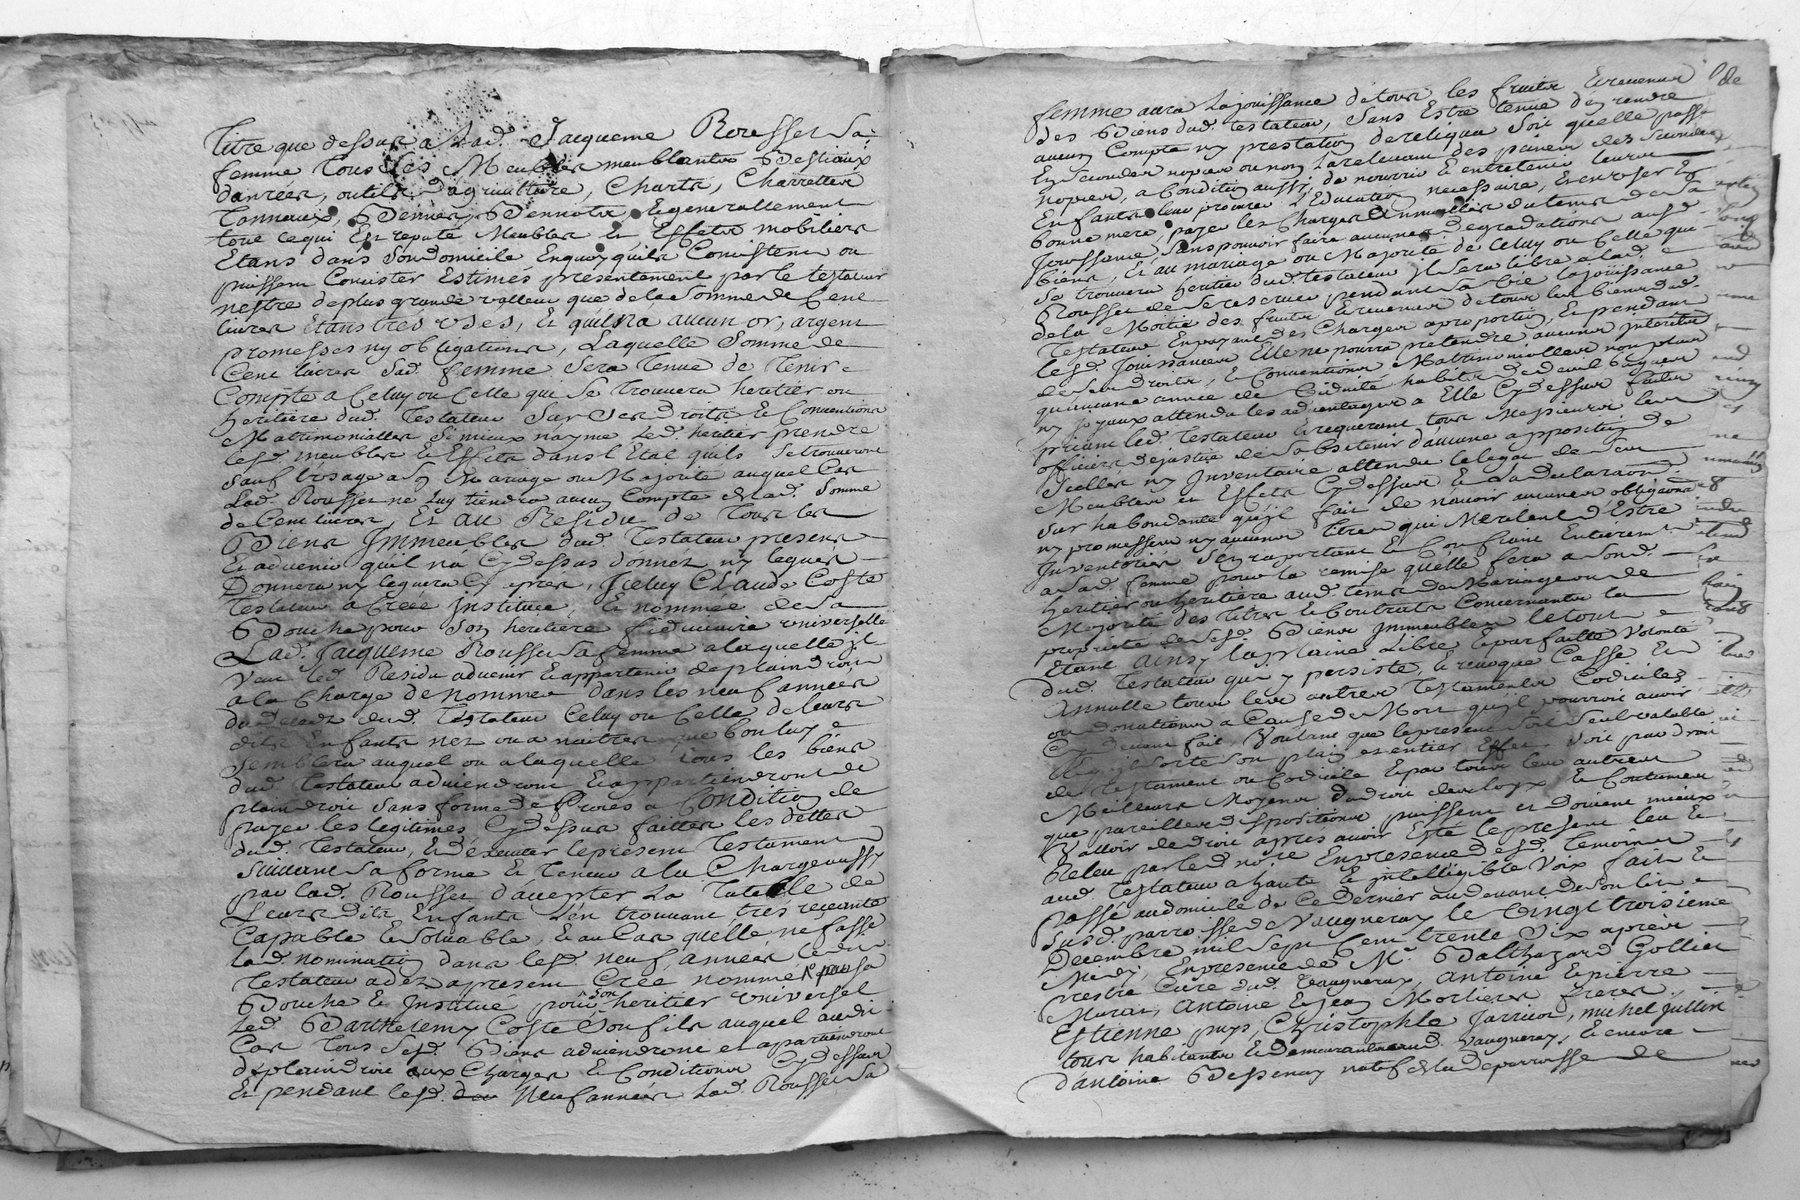 Titre que dessus a Lad. Jacqueme Rousset Sa
femme tous Ses Meubles meublants Bestiaux
danrées, outils d'agriculture, Charts, Charrettes
Tonneaux, Bennes, Bennots, & generallement
tout ce qui Est reputé Meubles et Effets mobiliers
Etans dans Son domicile En quoy quils Consistent ou
puissent Consister Estimés presentement par le testateur
nestre de plus grande valleur que de la Somme de Cent
livres Etans trés usés, Et quil na aucun or, argent
promesses ny obligations, Laquelle Somme de
Cent livres Sad. femme Sera Tenue de Tenir
Compte a Celuy ou Celle qui Se trouvera heritier ou
heritiere dud. Testateur Sur Ses droits & Conventions
Matrimonialles Si mieux nayme led. heritier prendre
lesd. meubles & Effets dans l'Etat quils Se trouveront
Sauf l'usage a Son Mariage ou Majorité auquel Cas
Lad. Rousset ne luy tiendra aucun Compte de lad. Somme
de Cent livres, Et au Residu de Tous les
Biens Immeubles dud. Testateur presens
Et advenir quil na Cy dessus donnez ny legués
Donnera ny leguera Cy apres, Iceluy Claude Coste
Testateur a Creé instituée, & nommée de Sa
Bouche pour Son heritiere fiduciaire universelle
Lad. Jacqueme Rousset Sa femme a laquelle il
Veut led. Residu advenir & appartenir de plain droit
a la Charge de nommer dans les neuf années
du deceds dud. Testateur Celuy ou Celle de leurs
dits Enfants nez ou a naitres que bon luy
Semblera auquel ou a laquelle tous les biens
dud. Testateur adviendront & appartiendront de
plain droit Sans forme de Procés a Condition de
payer les legitimes Cy dessus faittes les dettes
dud. Testateur, & d'executer le present Testament
Suivant Sa forme & Teneur a la Charge aussy
par lad. Rousset d'accepter La Tutelle de
Leurs dits Enfants L'en trouvant trés
Capable & Solvable, & au Cas quelle ne fasse
lad. nomination dans lesd. neuf années led.
Testateur a dez apresent Creé nommé & par Sa
Bouche & Institué pour Son heritier universel
Led. Barthelemy Coste Son fils auquel audit
Cas Tous Sesd. Biens adviendront et apartiendront
de plain droit aux Charges & Conditions Cy dessus
Et pendant lesd. Neuf années Lad. Rousset Sa
femme aura La jouissance de tous les fruits & revenus
des Biens dud. Testateur, Sans Estre tenue d'en rendre
aucun Compte ny prestation de reliqua Soit quelle passe
En Secondes nopces ou non La relevant des peines des Secondes
nopces, a Condition aussi de nourrir & entretenir leurs
Enfants leur procurer L'Education necessaire, En user En
bonne mere, payer les Charges annuelles du tems de Sa
Jouissance, Sans pouvoir faire aucunes degradations ausd.
biens, Et au mariage ou Majorité de Celuy ou Celle qui
Se trouvera heritier dud. testateur il Sera libre a lad.
Rousset de Se reserver pendant Sa vie la jouissance
de la Moitié des fruits & revenus de tous les biens dud.
Testateur En payant des Charges a proportion, Et pendant
lesd. Jouissances Elle ne pourra pretendre aucuns interests
de Ses droits, & Conventions Matrimonialles non plus
quaucune année de Viduité habits de deuil bagues
ny joyaux attendu les advantages a Elle Cy dessus faits
priant led. Testateur & requerant tous Messieurs les
officiers de justice de Sabstenir d'aucune apposition de
Scellez ny Inventaire attendu le legat de Ses
Meubles et Effets Cy dessus & La declaration
Sur habondante quil fait de navoir aucunes obligations
ny promesses ny aucunes Titres qui Meritent d'Estre
Inventoriés Sen raportant & Confiant Entierement
a Sad. femme pour la remise quelle fera a Sond.
heritier ou heritiere aud. tems de Mariage ou de
Majorité des Titres & Contrats Concernants la
proprieté de Sesd. Biens Immeubles le tout
Etant Ainsy la plaine Libre & parfaitte Volonté
dud. Testateur qui y persiste & revoque Casse Et
Annulle tous les autres Testaments Codicilles
ou donations a Cause de Mort quil pourroit avoir
Cy devant fait, Voulant que le present Soit Seul valable
& quil Sorte Son plain et entier Effet Soit par droit
de Testament ou Codicile & par tous les autres
Meilleurs Moyens de droit des loyx & Coutumes
que pareilles dispositions puissent et doivent mieux
Valloir de droit aprés avoir Esté le present leu &
Releu par led. no.re En presence desd. Temoins
aud. Testateur a haute & intelligible Voix fait &
Passé au domicile de Ce Dernier au devant de Son lit
Susd. parroisse de Vaugneray le Vingt troisieme
Decembre mil Sept Cent trente Six aprés
Midy, En presence de Mre. Balthazard Gollier
prestre Curé dud. Vaugneray, Antoine & pierre
Murat, Antoine & Jean Mortiers freres,
Estienne pays, Christophle Jarricot, michel jullin
tous habitants & demeurants aud. Vaugneray, & encore
d'antoine Bessenay natif de la de parroisse de